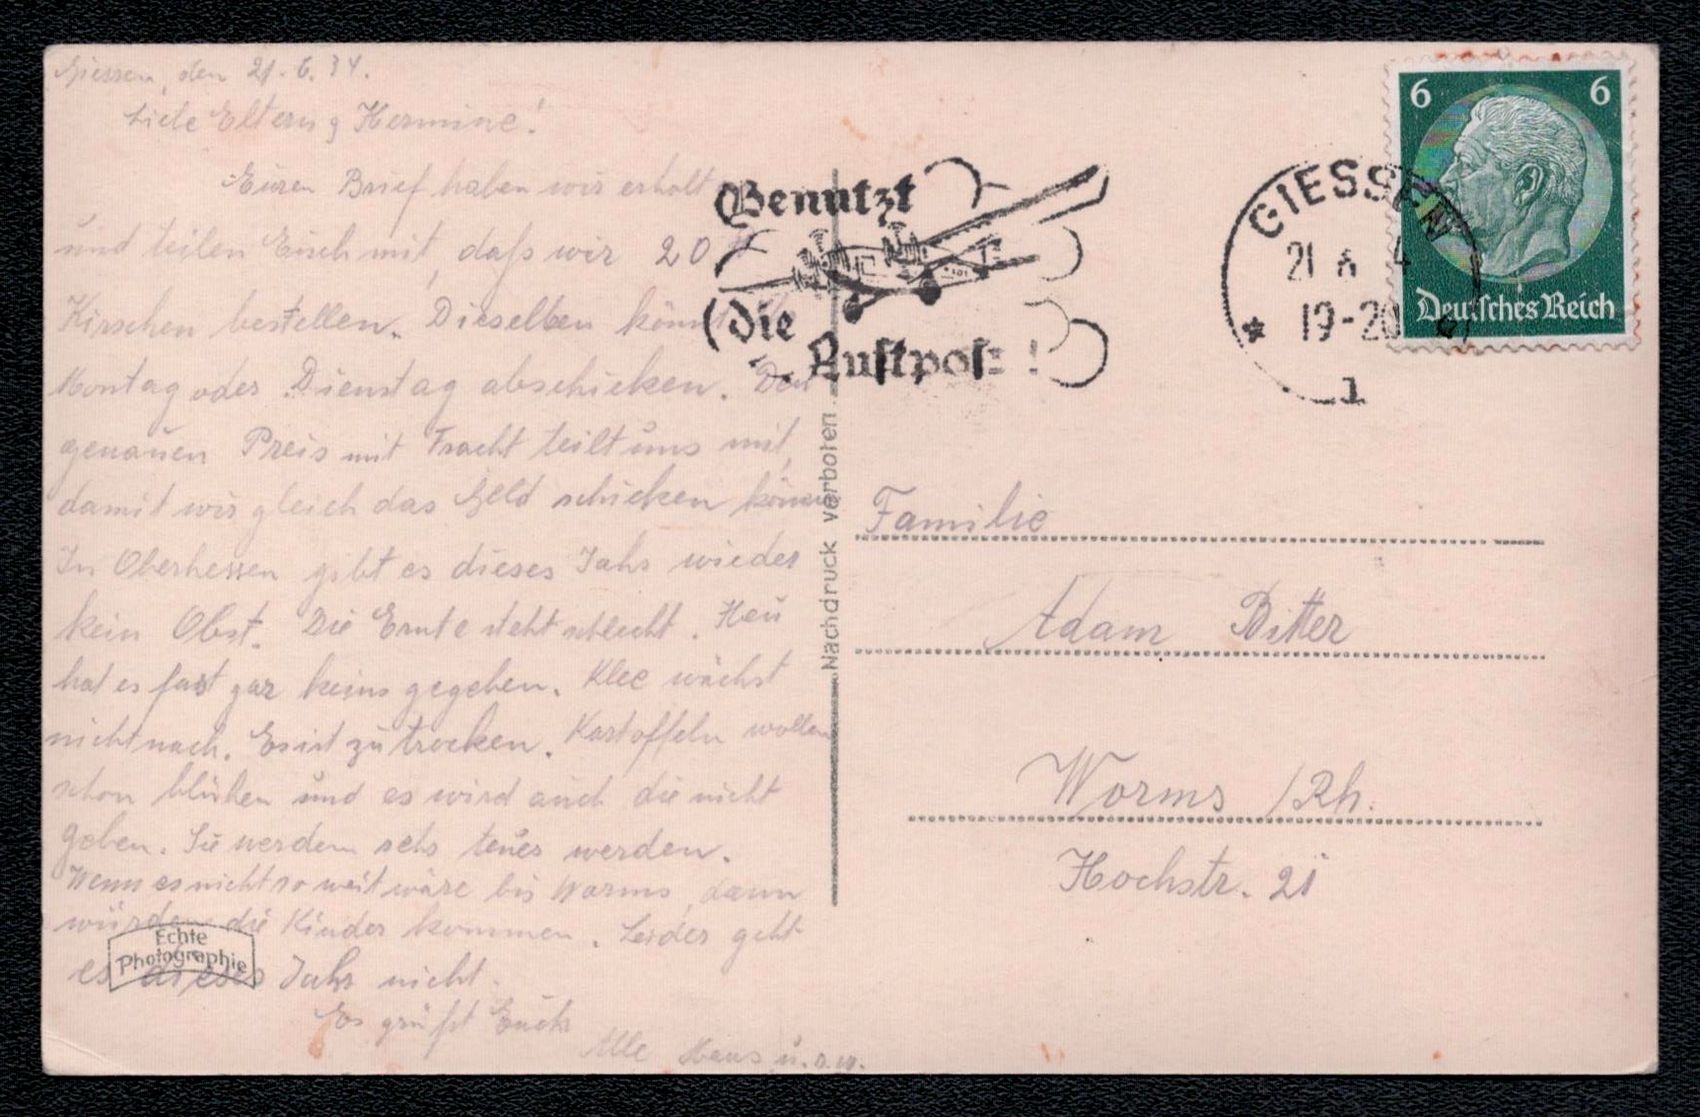 Giessen, den 21.6.34.
Liebe Eltern u Hermine!
Euren Brief haben wir erhalt
und teilen Euch mit, daß wir 20
Kirschen bestellen. Dieselben könnt
Montag oder Dienstag abschicken. Den
genauen Preis mit Fracht teilt uns mit,
damit wir gleich das Geld schicken können
In Oberhessen gibt es dieses Jahr wieder
kein Obst. Die Ernte steht schlecht. Heu
hat es fast gar keins gegeben. Klee wächst
nicht nach. Es ist zu trocken. Kartoffeln wollen
schon blühen und es wird auch die nicht
geben. Sie werden sehr teuer werden.
Wenn es nicht so weit wäre bis Worms, dann
würden die Kinder kommen. Leider geht
es dieses Jahr nicht.
Es grüßt Euch
Alle Hans u.s.w.
Echte
Photographie
Nachdruck verboten
Benutzt
die
Luftpost!
GIESSEN
21 6 4
19-20
1
6 6
Deutsches Reich
Familie
Adam Bitter
Worms /Rh.
Hochstr. 21